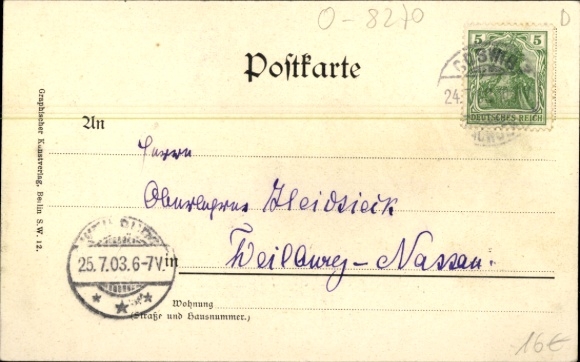 O-8270
D
Postkarte
5 5
DEUTSCHES REICH
COSWIG
24.
An
Herrn
Heidsieck
Weilburg-Nassau.
in
WEILBURG
25.7.03.6-7V.
Wohnung
(Straße und Hausnummer.)
Graphischer Kunstverlag, Berlin S.W. 12.
16€